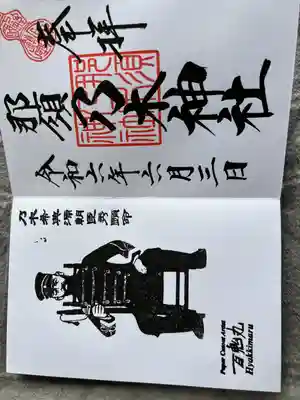 奉拝
那須乃木神社
令和六年六月三日
乃木希典
Paper Cutout Artist
百鬼丸
Hyakkimaru